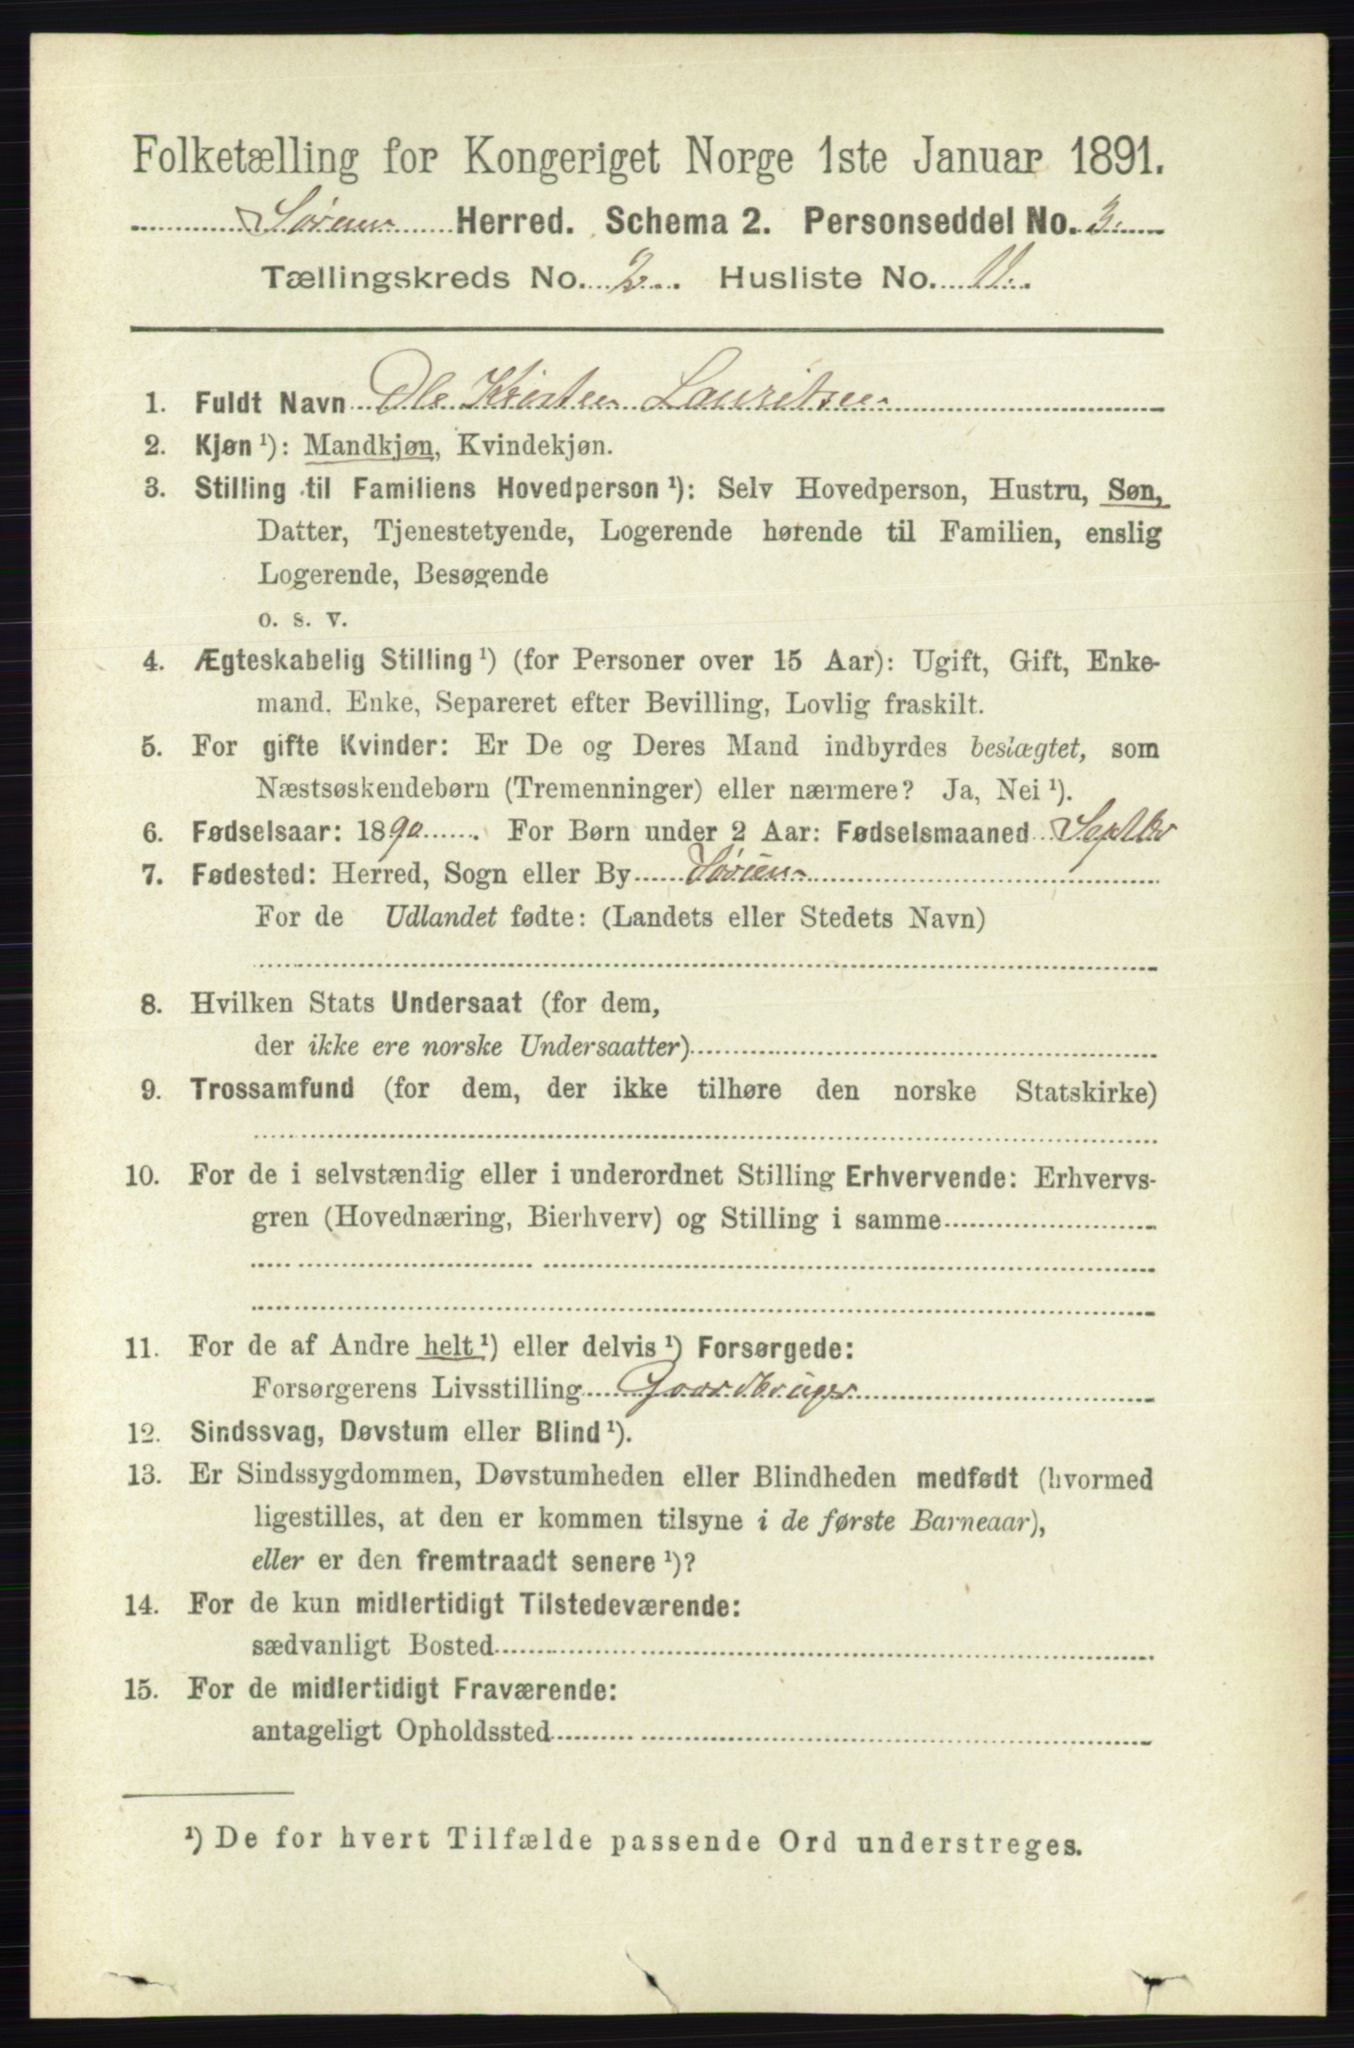 Folketælling for Kongeriget Norge 1ste Januar 1891.
Sørum Herred. Schema 2. Personseddel No. 3.
Tællingskreds No. 2. Husliste No. 11.
1. Fuldt Navn Ole Kristen Lauritsen
2. Kjøn ¹): Mandkjøn, Kvindekjøn.
3. Stilling til Familiens Hovedperson ¹): Selv Hovedperson, Hustru, Søn,
Datter, Tjenestetyende, Logerende hørende til Familien, enslig
Logerende, Besøgende
o. s. v.
4. Ægteskabelig Stilling ¹) (for Personer over 15 Aar): Ugift, Gift, Enke-
mand, Enke, Separeret efter Bevilling, Lovlig fraskilt.
5. For gifte Kvinder: Er De og Deres Mand indbyrdes beslægtet, som
Næstsøskendebørn (Tremenninger) eller nærmere? Ja, Nei ¹).
6. Fødselsaar: 1890. For Børn under 2 Aar: Fødselsmaaned Septbr
7. Fødested: Herred, Sogn eller By Sørum
For de Udlandet fødte: (Landets eller Stedets Navn)
8. Hvilken Stats Undersaat (for dem,
der ikke ere norske Undersaatter)
9. Trossamfund (for dem, der ikke tilhøre den norske Statskirke)
10. For de i selvstændig eller i underordnet Stilling Erhvervende: Erhvervs-
gren (Hovednæring, Bierhverv) og Stilling i samme
11. For de af Andre helt ¹) eller delvis ¹) Forsørgede:
Forsørgerens Livsstilling Jordbruger
12. Sindssvag, Døvstum eller Blind ¹).
13. Er Sindssygdommen, Døvstumheden eller Blindheden medfødt (hvormed
ligestilles, at den er kommen tilsyne i de første Barneaar),
eller er den fremtraadt senere ¹)?
14. For de kun midlertidigt Tilstedeværende:
sædvanligt Bosted
15. For de midlertidigt Fraværende:
antageligt Opholdssted
¹) De for hvert Tilfælde passende Ord understreges.